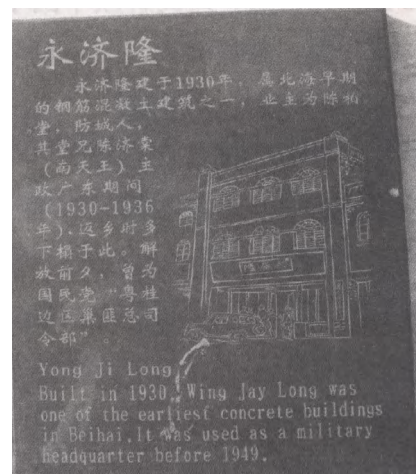 永济隆
永济隆建于1930年，属北海早期
的钢筋混凝土建筑之一，业主为陈礼
堂，防城人，
其堂兄陈济棠
（南天王）主
政广东期间
（1930-1936
年），返乡时多
下榻于此。解
放前夕，曾为
国民党“粤桂
边区剿匪总司
令部”。
Yong Ji Long
Built in 1930, Wing Jay Long was
one of the earliest concrete buildings
in Beihai. It was used as a military
headquarter before 1949.